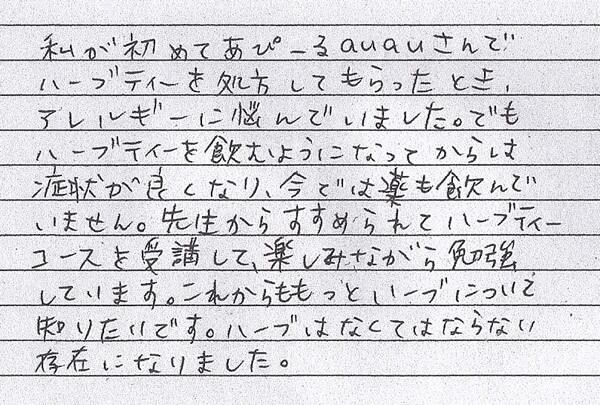 私が初めてあぴーるauauさんで
ハーブティーを処方してもらったとき、
アレルギーに悩んでいました。でも
ハーブティーを飲むようになってからは
症状が良くなり、今では薬も飲んで
いません。先生からすすめられてハーブティー
コースを受講して、楽しみながら勉強
しています。これからももっとハーブについて
知りたいです。ハーブはなくてはならない
存在になりました。